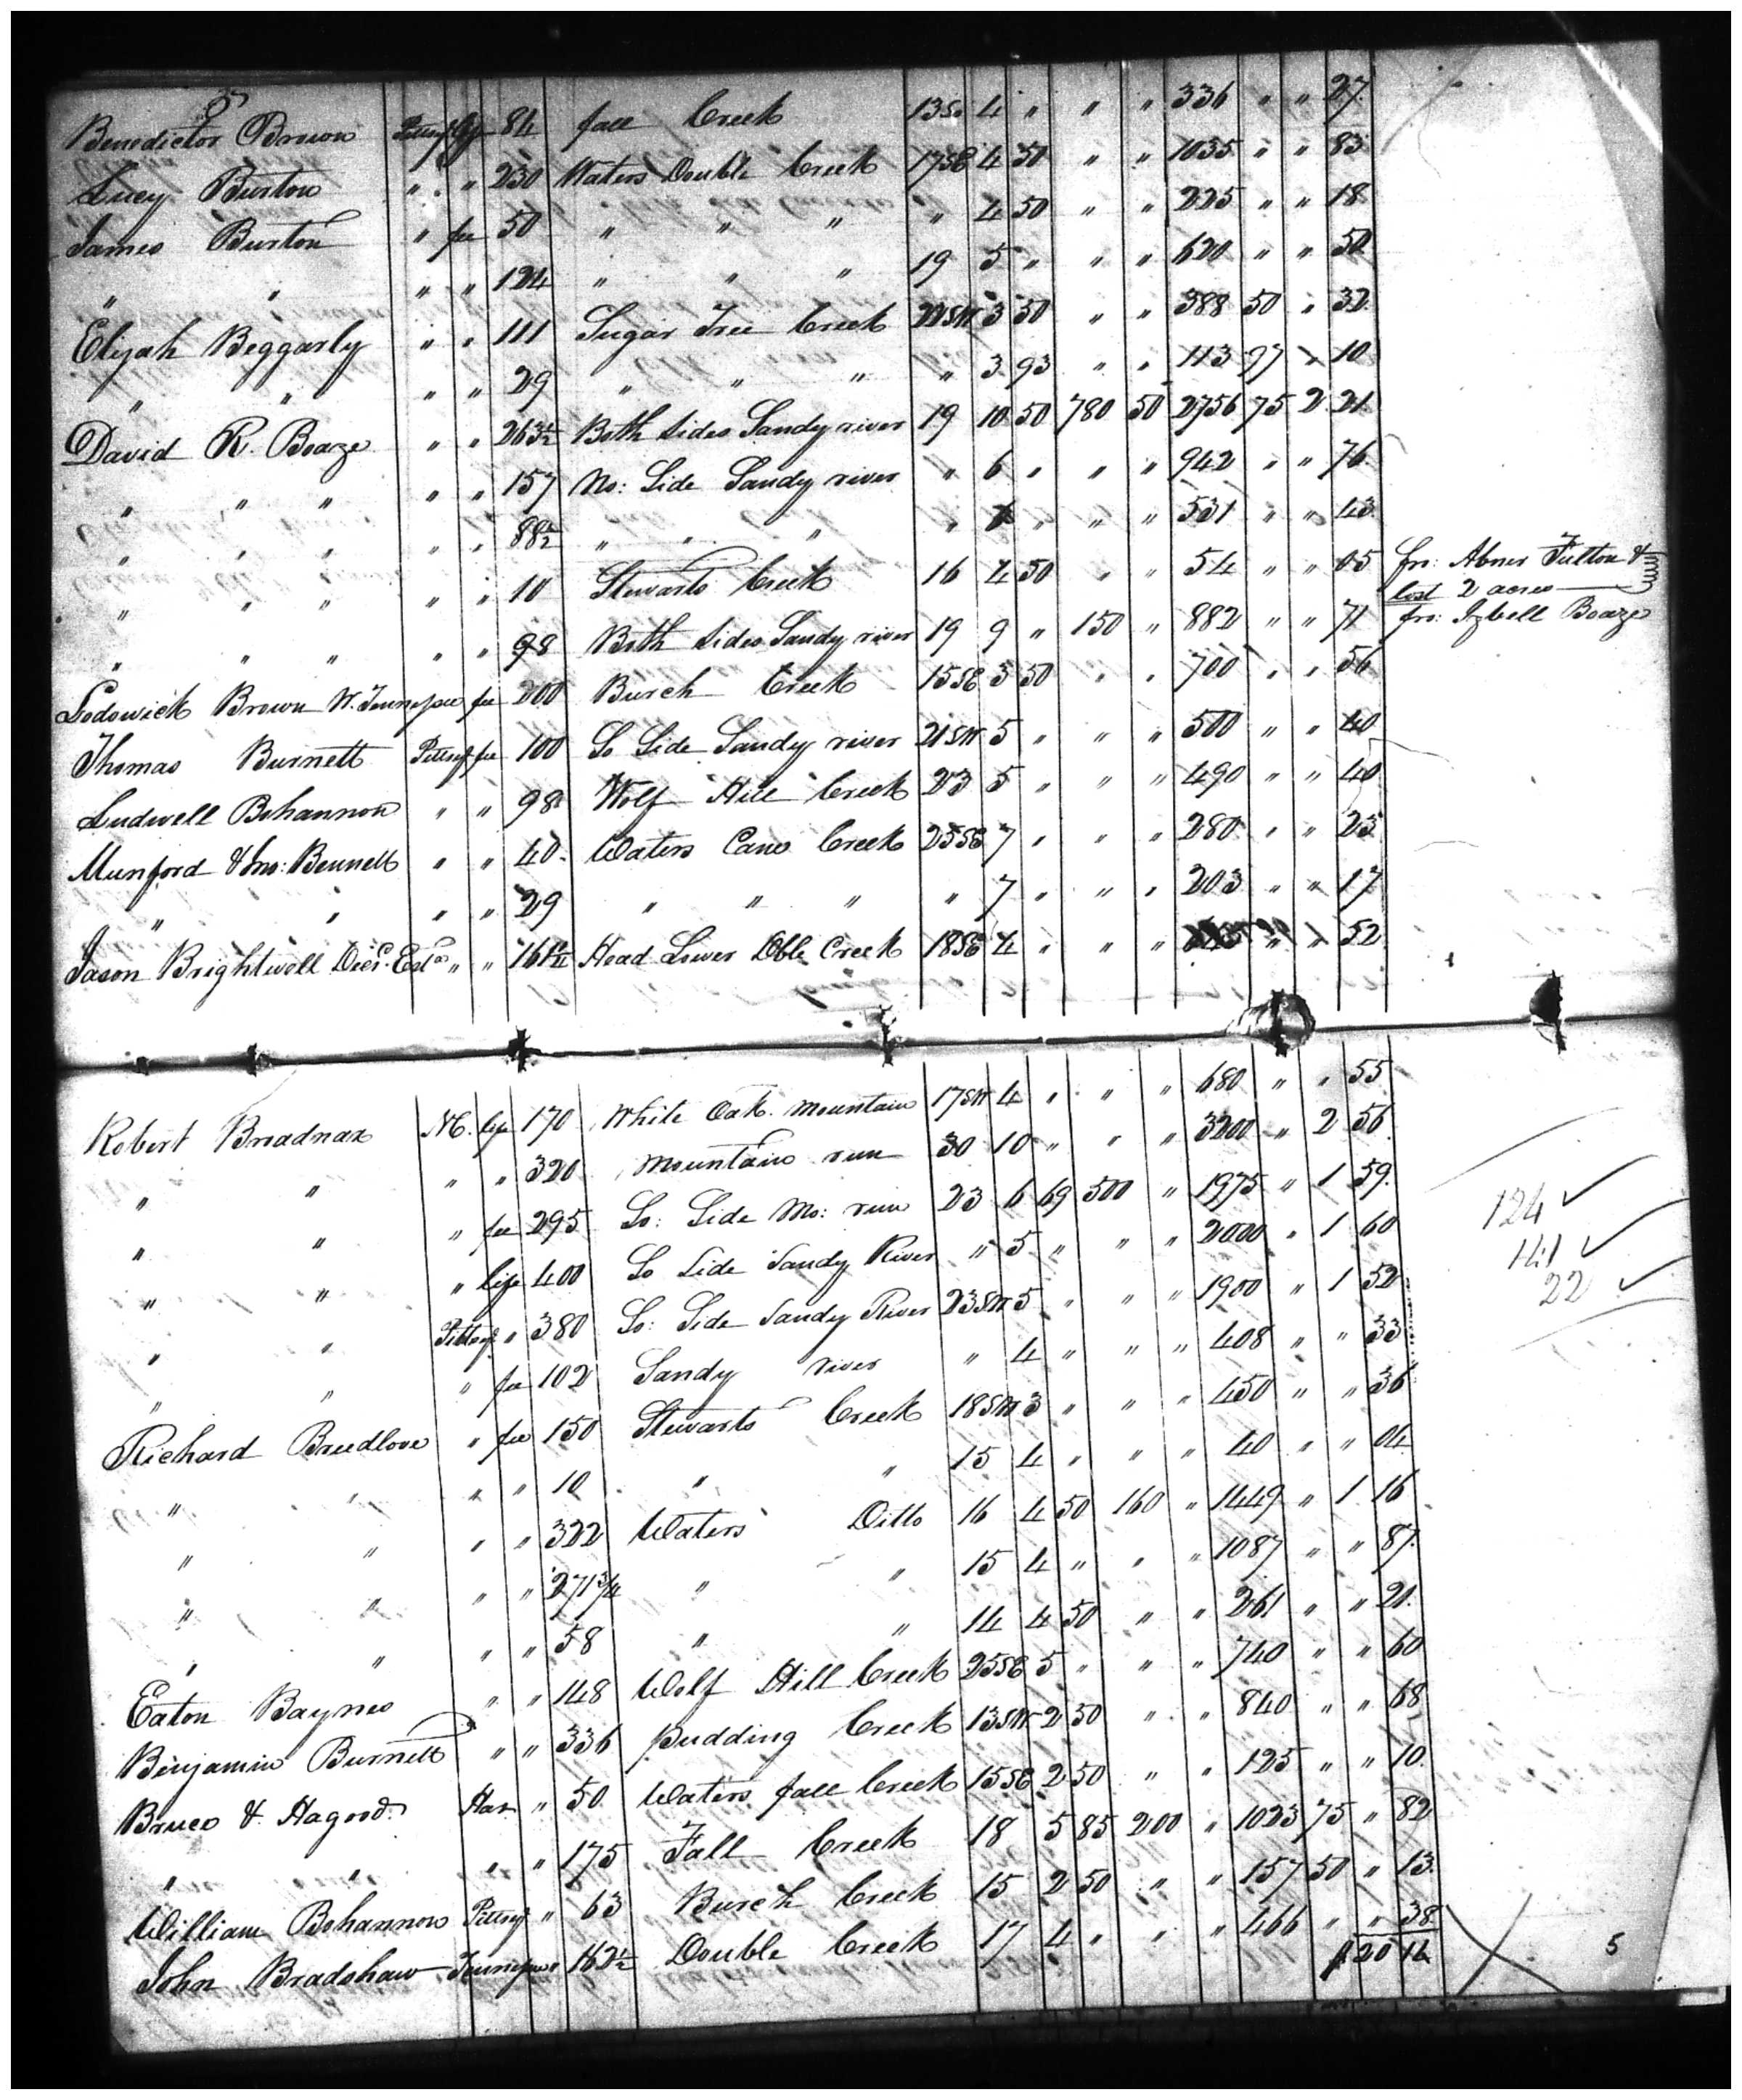 Benedictor Brown Pittsy life 84 fall Creek 13So 4 " " " 336 " " 27
Lucy Burton " " 230 Waters Double Creek 17SE 4 50 " " 1035 " " 83
James Burton " fee 50 " " " " 4 50 " " 225 " " 18
" " " " 124 " " " 19 5 " " " 620 " " 50
Elijah Beggarly " " 111 Sugar Tree Creek 22SW 3 50 " " 388 50 " 32
" " " " 29 " " " " 3 93 " " 113 97 " 10
David R. Boaze " " 263 1/2 Both sides Sandy river 19 10 50 780 50 2756 75 2 21
" " " " " 157 No: Side Sandy river " 6 " " " 942 " " 76
" " " " " 88 1/2 " " " " " " " 531 " " 43
" " " " " 10 Stewarts Creek 16 4 50 " " 54 " " 05 fro: Abner Fulton &
lost 2 acres
" " " " " 98 Both sides Sandy river 19 9 " 150 " 882 " " 71 fro: Izbell Boaze
Lodowick Brown W. Tennessee fee 200 Burch Creek 15SE 3 50 " " 700 " " 56
Thomas Burnett Pittsy fee 100 So Side Sandy river 21SW 5 " " " 500 " " 40
Ludwell Bohannon " " 98 Wolf Hill Creek 23 5 " " " 490 " " 40
Munford & Jno: Bennett " " 40 Waters Cane Creek 25SE 7 " " " 280 " " 23
" " " " 29 " " " " 7 " " " 203 " " 17
Jason Brightwell Decs. Esta " " 161 1/4 Head Lower Dble Creek 18SE 4 " " " " 1 52
Robert Broadnax NC. life 170 White Oak Mountain 17SW 4 " " " 680 " " 55
" " " " 320 Mountain run 30 10 " " " 3200 " 2 56
" " " fee 295 So: Side Mo: run 23 6 69 500 " 1975 " 1 59
124
" " " life 400 So Side Sandy River " 5 " " " 2000 " 1 60
141
" " Pittsy " 380 So: Side Sandy River 23SW 5 " " " 1900 " 1 52
22
" " " fee 102 Sandy river " 4 " " " 408 " " 33
Richard Breedlove " fee 150 Stewarts Creek 18SW 3 " " " 450 " " 36
" " " " 10 " " 15 4 " " " 40 " " 04
" " " " 322 Waters Ditto 16 4 50 160 " 1449 " 1 16
" " " " 271 3/4 " " 15 4 " " " 1087 " " 87
" " " " 58 " " 14 4 50 " " 261 " " 21
Eaton Baynes " " 148 Wolf Hill Creek 25SE 5 " " " 740 " " 60
Benjamin Burnett " " 336 pudding Creek 13SW 2 50 " " 840 " " 68
Bruce & Hagood Hax " 50 Waters fall Creek 15SE 2 50 " " 125 " " 10
" " " " 175 Fall Creek 18 5 85 200 " 1023 75 " 82
William Bohannon Pittsy " 63 Burch Creek 15 2 50 " " 157 50 " 13
John Bradshaw Tennessee " 162 1/2 Double Creek 17 4 " " " 466 " " 38
20 14
5